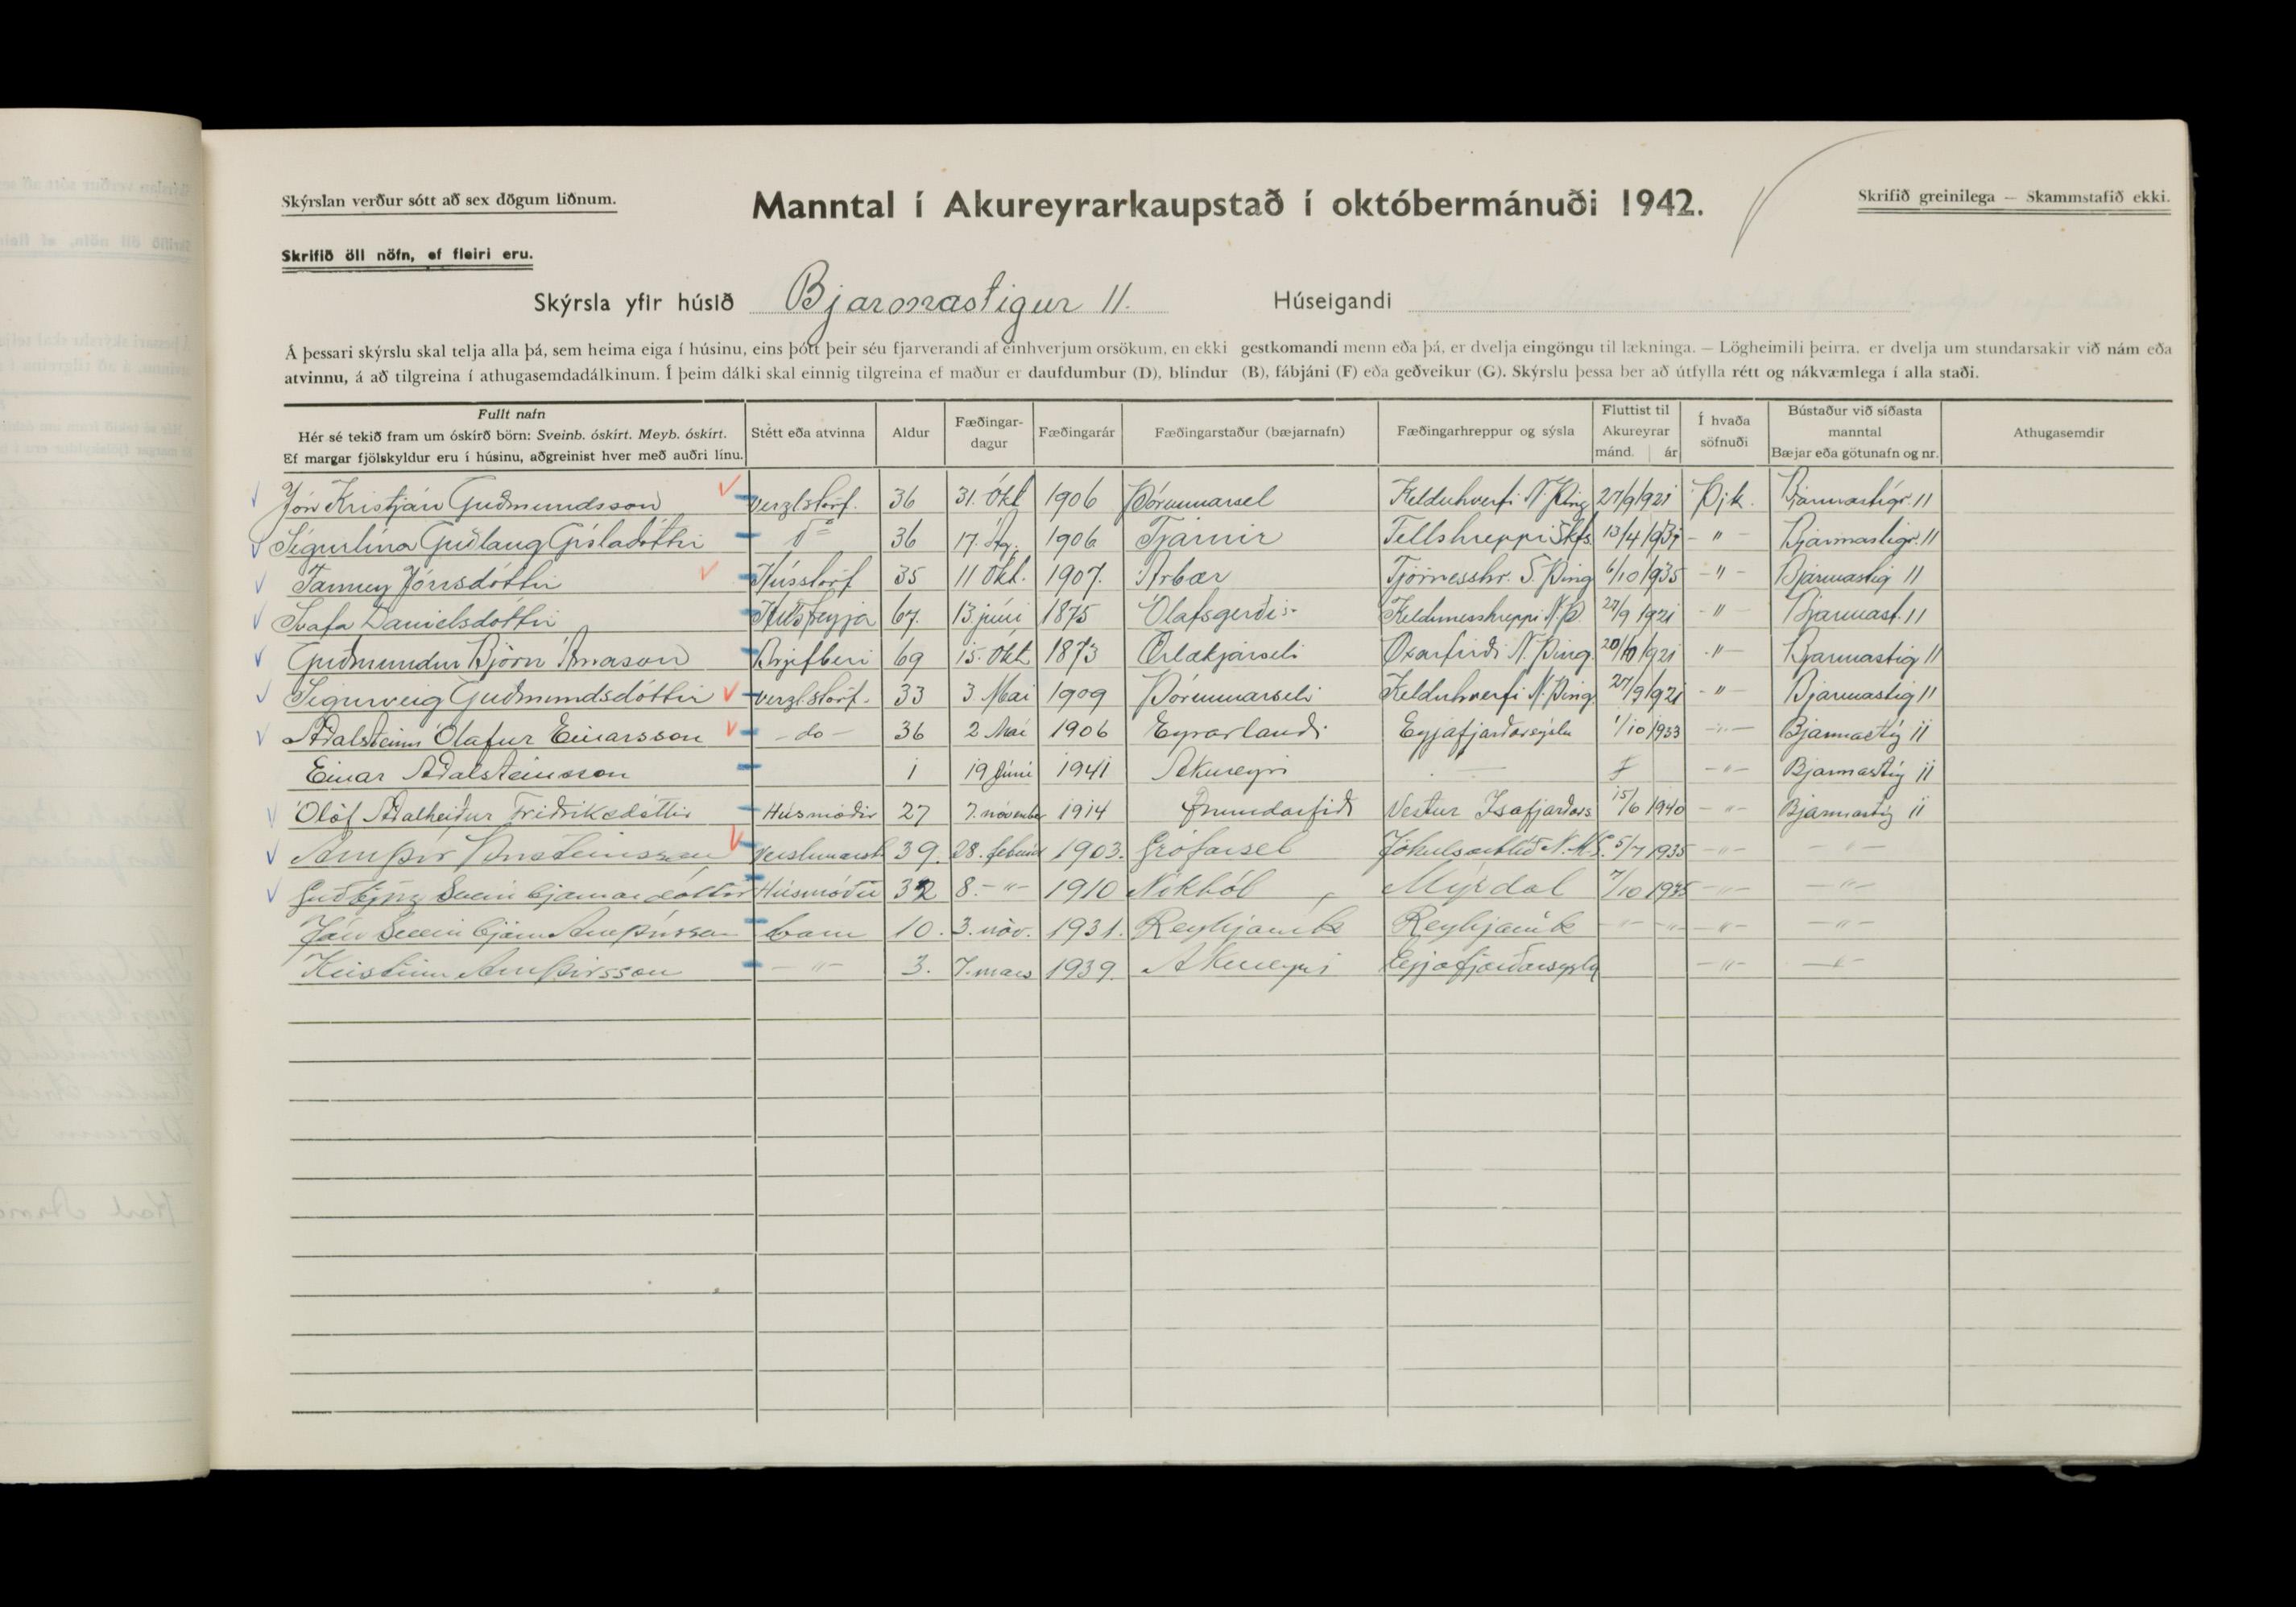 Skýrslan verður sótt að sex dögum liðnum.
Manntal í Akureyrarkaupstað í októbermánuði 1942.
Skrifið greinilega — Skammstafið ekki.
Skrifið öll nöfn, ef fleiri eru.
Skýrsla yfir húsið Bjarmastigur 11. Húseigandi
Á þessari skýrslu skal telja alla þá, sem heima eiga í húsinu, eins þótt þeir séu fjarverandi af einhverjum orsökum, en ekki gestkomandi menn eða þá, er dvelja eingöngu til lækninga. — Lögheimili þeirra, er dvelja um stundarsakir við nám eða
atvinnu, á að tilgreina í athugasemdadálkinum. Í þeim dálki skal einnig tilgreina ef maður er daufdumbur (D), blindur (B), fábjáni (F) eða geðveikur (G). Skýrslu þessa ber að útfylla rétt og nákvæmlega í alla staði.
Fullt nafn
Hér sé tekið fram um óskírð börn: Sveinb. óskírt. Meyb. óskírt.
Ef margar fjölskyldur eru í húsinu, aðgreinist hver með auðri línu.
Stétt eða atvinna
Aldur
Fæðingar-
dagur
Fæðingarár
Fæðingarstaður (bæjarnafn)
Fæðingarhreppur og sýsla
Fluttist til
Akureyrar
mánd. ár
Í hvaða
söfnuði
Bústaður við síðasta
manntal
Bæjar eða götunafn og nr.
Athugasemdir
Jón Kristján Guðmundsson verzlstörf. 36 31. Okt 1906 Þórunnarsel Kelduhverfi N. Þing 27/9 1921 Þjk. Bjarmastigr. 11
Sigurlína Guðlaug Gísladóttir 36 17. Ág. 1906 Tjarnir Fellshreppi Skfs. 13/4 - " - Bjarmastigr. 11
Fanney Jónsdóttir Hússtörf 35 11 Okt. 1907. Árbær Tjörnesshr. S. Þing 6/10 1935 - " - Bjarmastig 11
Svafa Daníelsdóttir Húsfreyja 67. 13 júni 1875 Ólafsgerði Keldunesshreppi N.Þ. 27/9 1921 - " - Bjarmast. 11
Guðmundur Björn Árnason Brjefberi 69 15. Okt 1873 Öxarfirði N. Þing. 20/10 1921 - " - Bjarmastig 11
Sigurveig Guðmundsdóttir verzl.störf. 33 3. Mai 1909 Þórunnarseli Kelduhverfi N. Þing. 27/9 1921 - " - Bjarmastig 11
Aðalsteinn Ólafur Einarsson - do - 36 2 Mai 1906 Eyrarlandi Eyjafjarðarsýslu 1/10 1933 - " - Bjarmastig 11
Einar Aðalsteinsson 1 19 Júni 1941 Akureyri — - " - Bjarmastig 11
Ólöf Aðalheiður Friðriksdóttir Húsmóðir 27 7. nóvember 1914 Vestur Isafjarðars 15/6 1940 - " - Bjarmastig 11
Arnþór Þorsteinsson 39. 28. febrúar 1903. Grófarsel Jökulsárhlíð N.M.S. 5/7 1935 - " - - " -
Guðbjörg Sveinbjarnardóttir Húsmóðir 32 8. - " - 1910 Nikhól Mýrdal 7/10 1935 - " - - " -
Jón Sveinbjörn Arnþórsson barn 10. 3. nóv. 1931. Reykjavík Reykjavík - " - - " - - " - - " -
Kristinn Arnþórsson - " - 3. 7. mars 1939. Akureyri Eyjafjarðarsýsla - " - - " -